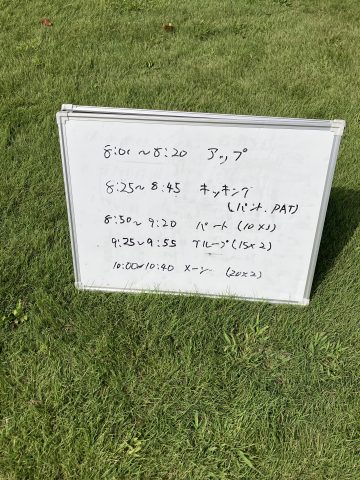 8:00 ~ 8:20 アップ
8:25 ~ 8:45 キッキング
(パント. PAT)
8:50 ~ 9:20 パート (10×3)
9:25 ~ 9:55 グループ (15×2)
10:00~10:40 メーン (20×2)